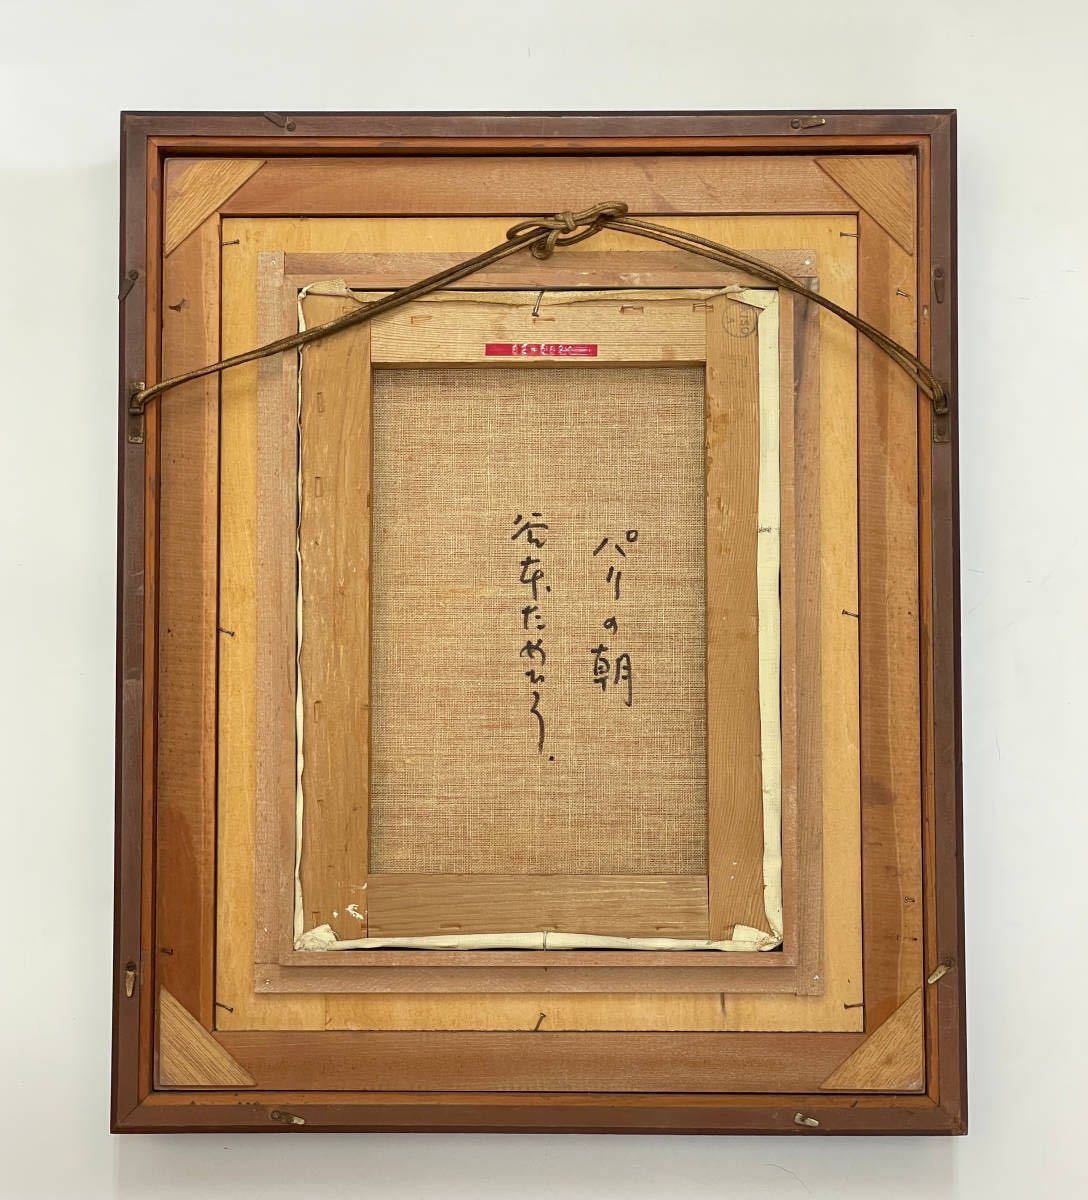 パリの朝
谷本ためひろ.